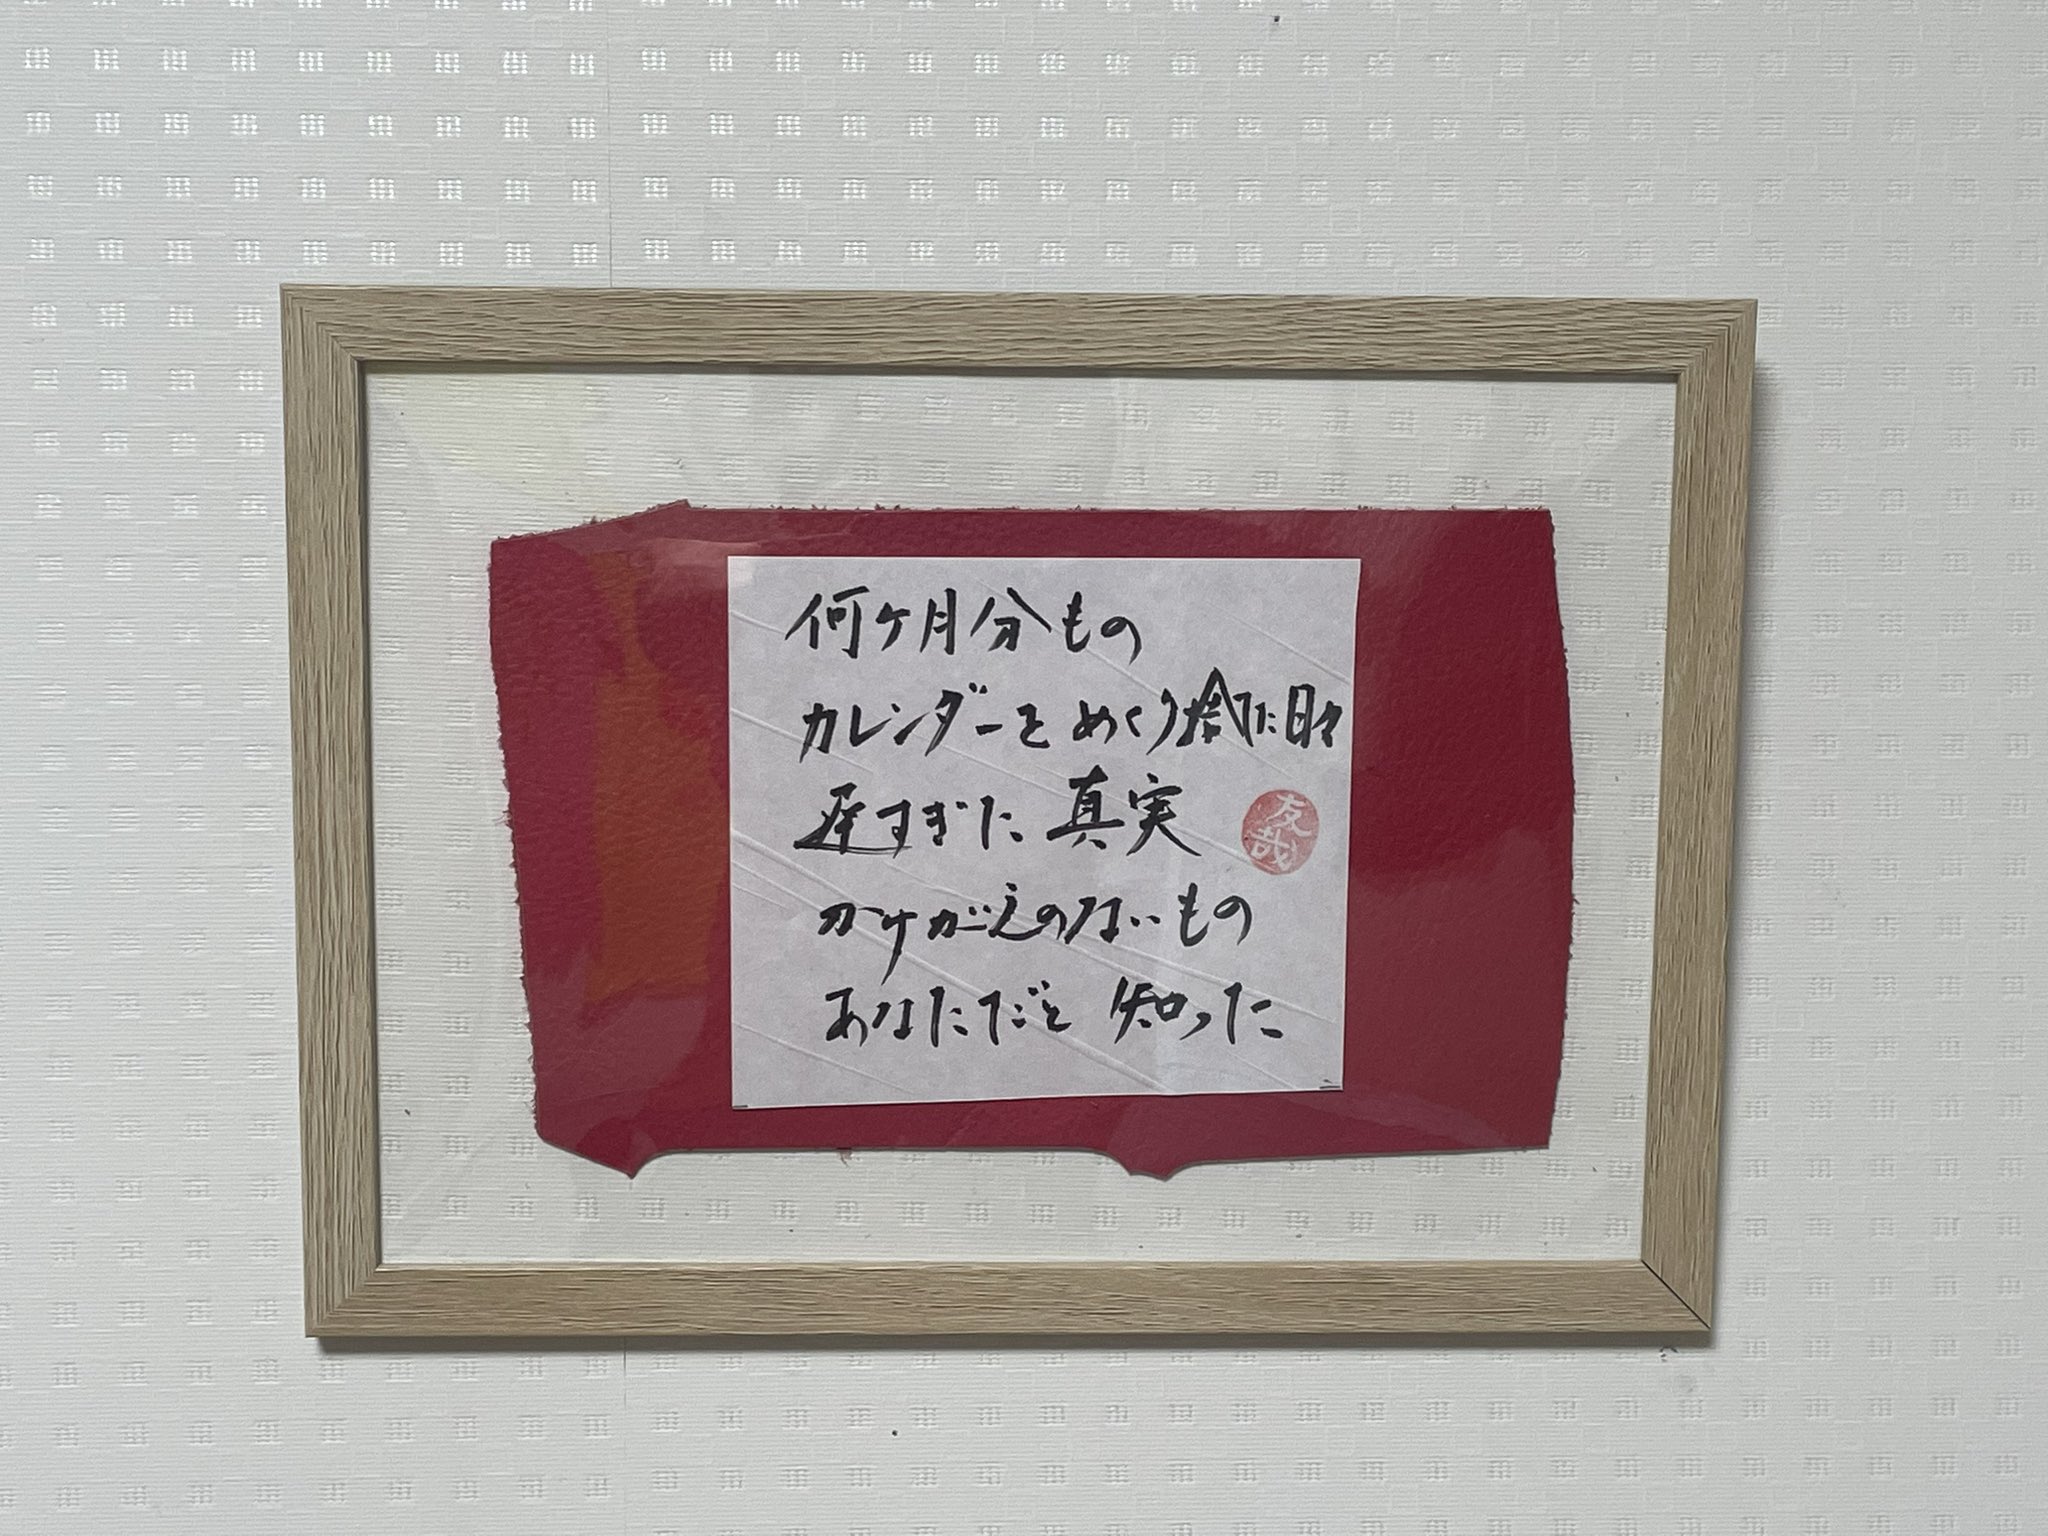 何ヶ月分もの
カレンダーをめくり捨てた日々
遅すぎた真実
友哉
かけがえのないもの
あなただと知った